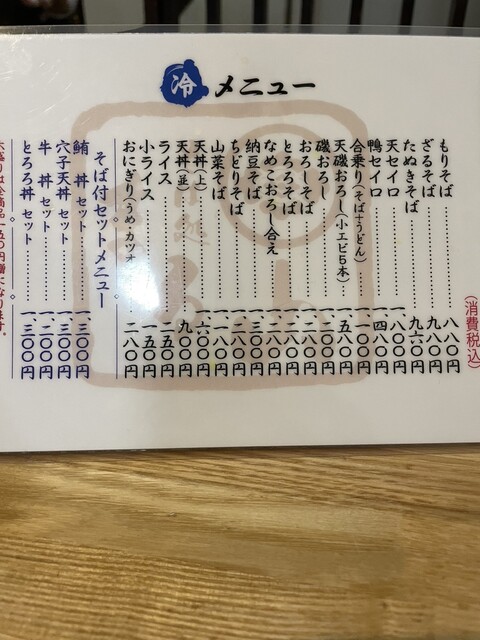 冷メニュー
(消費税込)
もりそば 八八〇円
ざるそば 九八〇円
たぬきそば 九六〇円
天セイロ 一、八〇〇円
鴨セイロ 一、四八〇円
合乗り(そば+うどん) 一、一〇〇円
天磯おろし(小エビ5本) 一、五八〇円
磯おろ
おろしそば
とろろそば
なめこおろし合え
納豆そば
ちどりそば
山菜そば 一、一八〇円
天丼(上) 一、六〇〇円
天丼(並) 九〇〇円
ライス 二五〇円
小ライス 一五〇円
おにぎり(うめ・カツオ 二八〇円
そば付セットメニュー
鮪丼セット 一、三〇〇円
穴子天丼セット 一、三〇〇円
牛丼セット 一、二〇〇円
とろろ丼セット 一、三〇〇円
盛りは全商品一五〇円増になります。